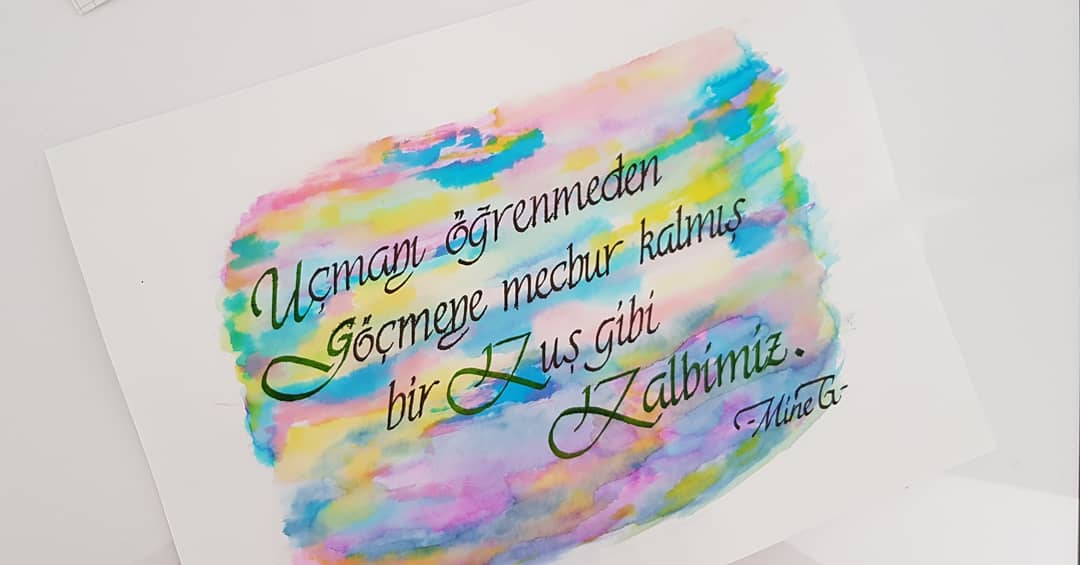 Uçmaŋı öğrenmeden
Göçmeŋe mecbur kalmış
bir Kuş gibi
Kalbimiz.
-Mine G-